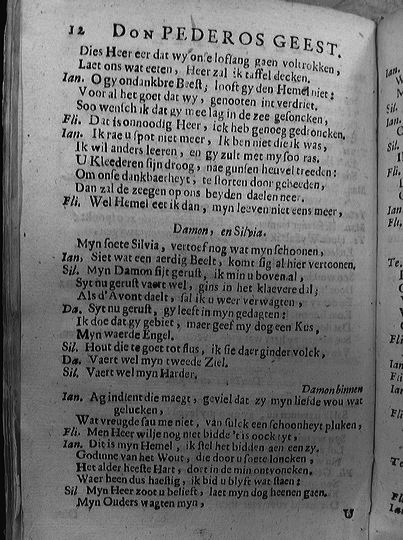 12 DON PEDEROS GEEST.
Dies Heer eer dat wy onse lofsang gaen voltrokken,
Laet ons wat eeten, Heer zal ik taffel decken.
Ian. O gy ondankbre Beest, looft gy den Hemel niet:
Voor al het goet dat wy, genooten int verdriet.
Soo wensch ik dat gy mee lag in de zee gesoncken,
Fli. Dat is onnoodig Heer, ick heb genoeg gedroncken.
Ian. Ik rae u spot niet meer, Ik ben niet die ik was,
Ik wil anders leeren, en gy zult met my soo ras.
U Kleederen sijn droog, nae gunsen heuvel treeden:
Om onse dankbaerheyt, te storten door gebeeden,
Dan zal de zeegen op ons beyden daelen neer.
Fli. Wel Hemel eet ik dan, myn leeven niet eens meer,
Damon, en Silvia.
Myn soete Silvia, vertoef nog wat myn schoonen,
Ian, Siet wat een aerdig Beelt, komt sig al hier vertoonen.
Sil. Myn Damon sijt gerust, ik min u boven al,
Syt nu gerust vaert wel, gins in het klaevere dal;
Als d'Avont daelt, sal ik u weer verwagten,
Da. Syt nu gerust, gy leeft in myn gedagten:
Ik doe dat gy gebiet, maer geef my dog een Kus,
Myn waerde Engel.
Sil. Hout die te goet tot flus, ik sie daer ginder volck,
Da. Vaert wel myn tweede Ziel.
Sil. Vaert wel myn Harder.
Damon binnen
Ian. Ag indient die maegt, geviel dat zy myn liefde wou wat
gelucken,
Wat vreugde sau me niet, van sulck een schoonheyt pluken,
Fli. Men Heer wilje nog niet bidde 't is oock tyt,
Ian. Dit is myn Hemel, ik stel het bidden aen een zy.
Godinne van het Wout, die door u soete loncken,
Het alder heefte Hart, doet in de min ontvoncken.
Waer heen dus haestig, ik bid u blyft wat staen:
Sil Myn Heer zoot u belieft, laet myn dog heenen gaen.
Myn Ouders wagten myn,
U